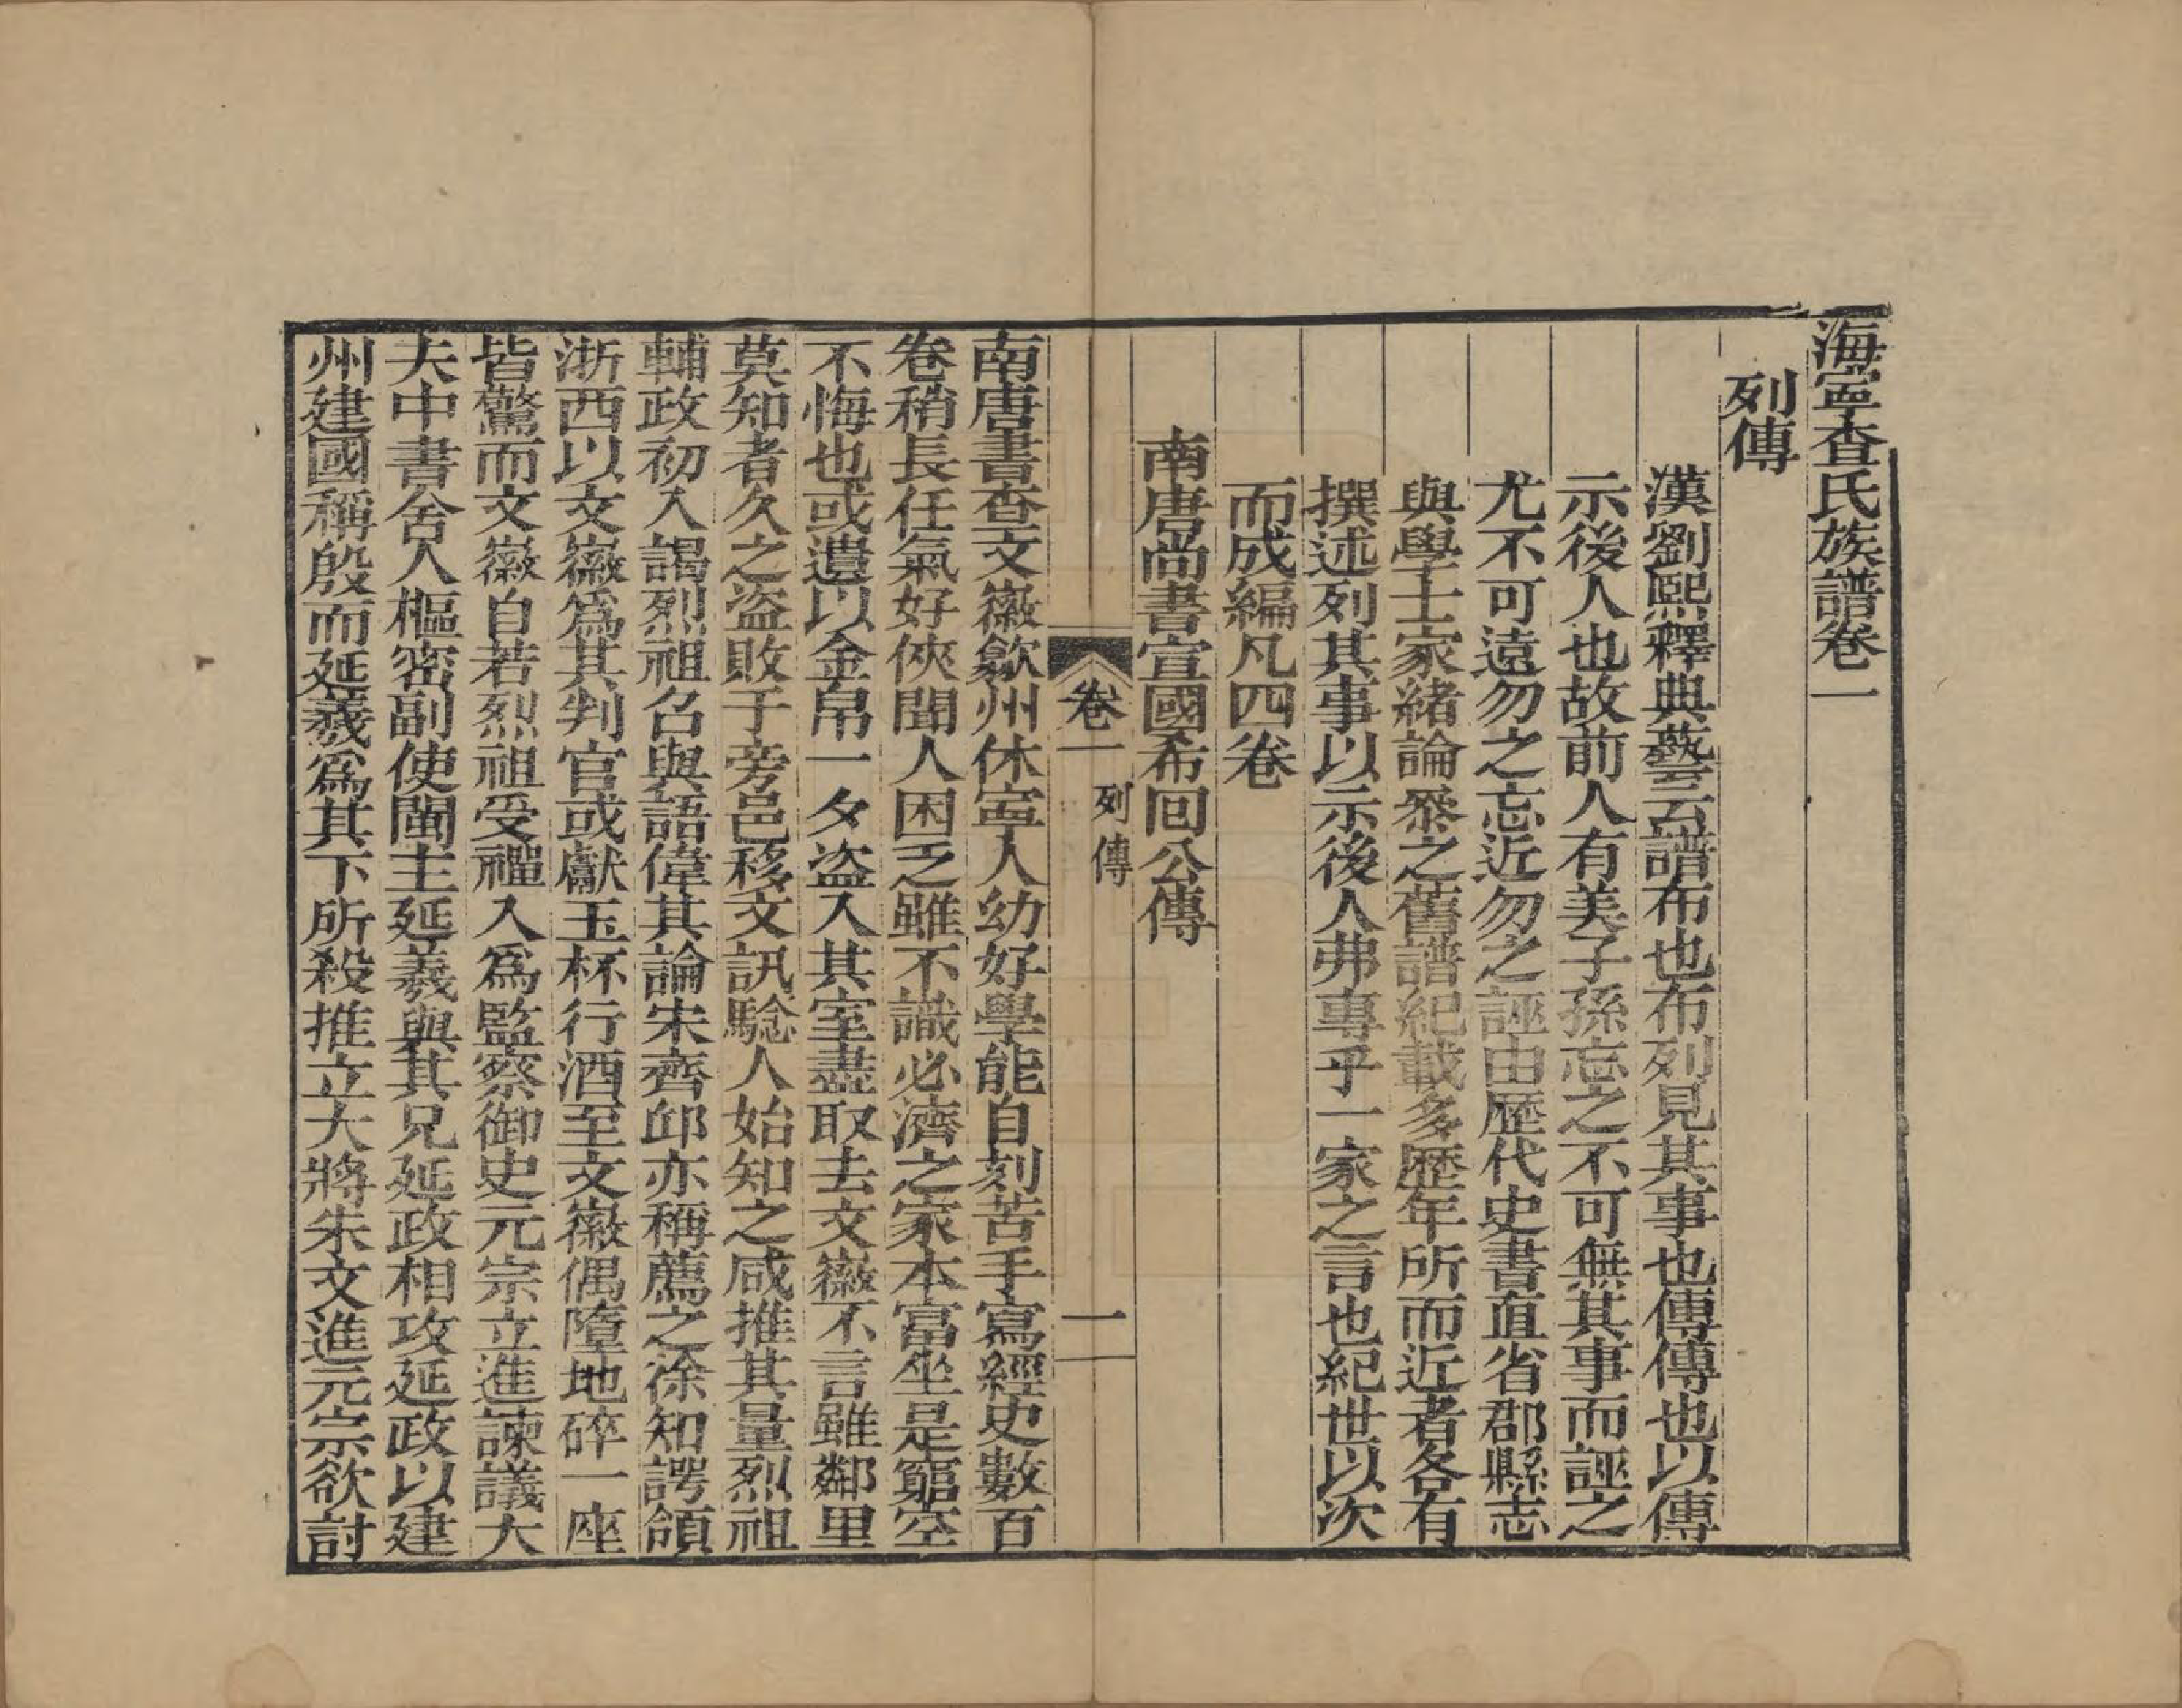 海寧查氏族譜卷一
列傳
漢劉熙釋典藝云譜布也布列見其事也傳傳也以傳
示後人也故前人有美子孫忘之不可無其事而誣之
尤不可遠勿之忘近勿之誣由歷代史書直省郡縣志
與學士家緒論叅之舊譜紀載多歷年所而近者各有
撰述列其事以示後人弗專乎一家之言也紀世以次
而成編凡四卷
南唐尚書宣國希回公傳
卷一 列傳 一
南唐書查文徽歙州休寧人幼好學能自刻苦手寫經史數百
卷稍長任氣好俠聞人困乏雖不識必濟之家本富坐是窮空
不悔也或遺以金帛一夕盜入其室盡取去文徽不言雖鄰里
莫知者久之盜敗于旁邑移文訊騐人始知之咸推其量烈祖
輔政初入謁烈祖召與語偉其論宋齊邱亦稱薦之徐知諤領
浙西以文徽爲其判官或獻玉杯行酒至文徽偶墮地碎一座
皆驚而文徽自若烈祖受禪入爲監察御史元宗立進諫議大
夫中書舍人樞密副使閩主延羲與其兄延政相攻延政以建
州建國稱殷而延羲爲其下所殺推立大將朱文進元宗欲討